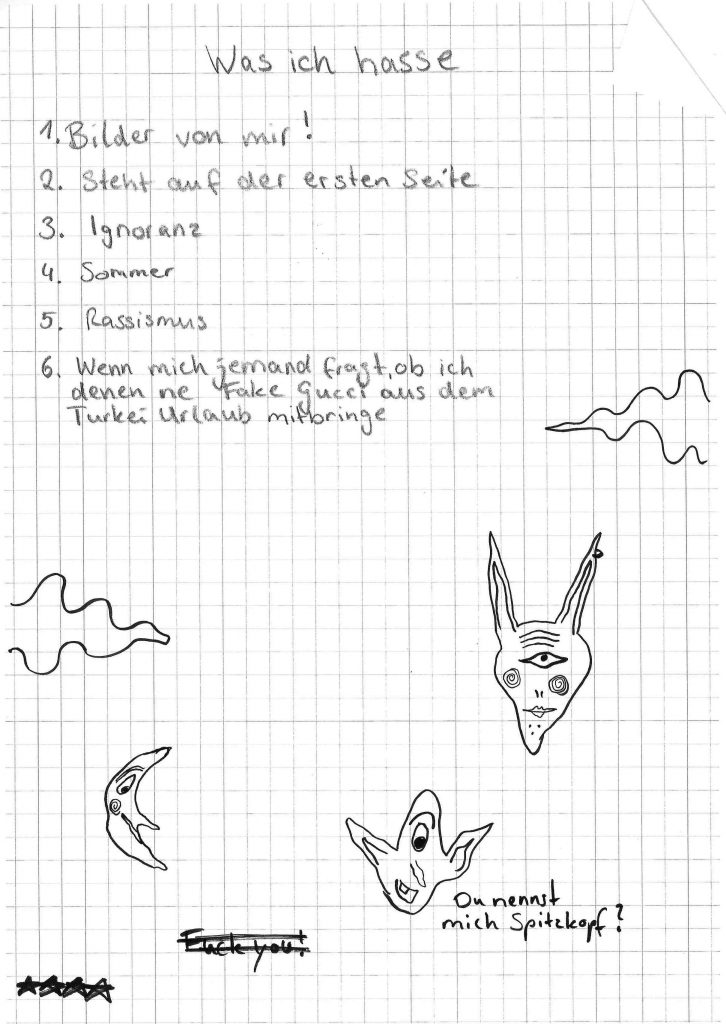 Was ich hasse
1. Bilder von mir!
2. Steht auf der ersten Seite
3. Ignoranz
4. Sommer
5. Rassismus
6. Wenn mich jemand fragt, ob ich
denen ne Fake Gucci aus dem
Turkei Urlaub mitbringe
Du nennst
mich Spitzkopf?
Fuck you!